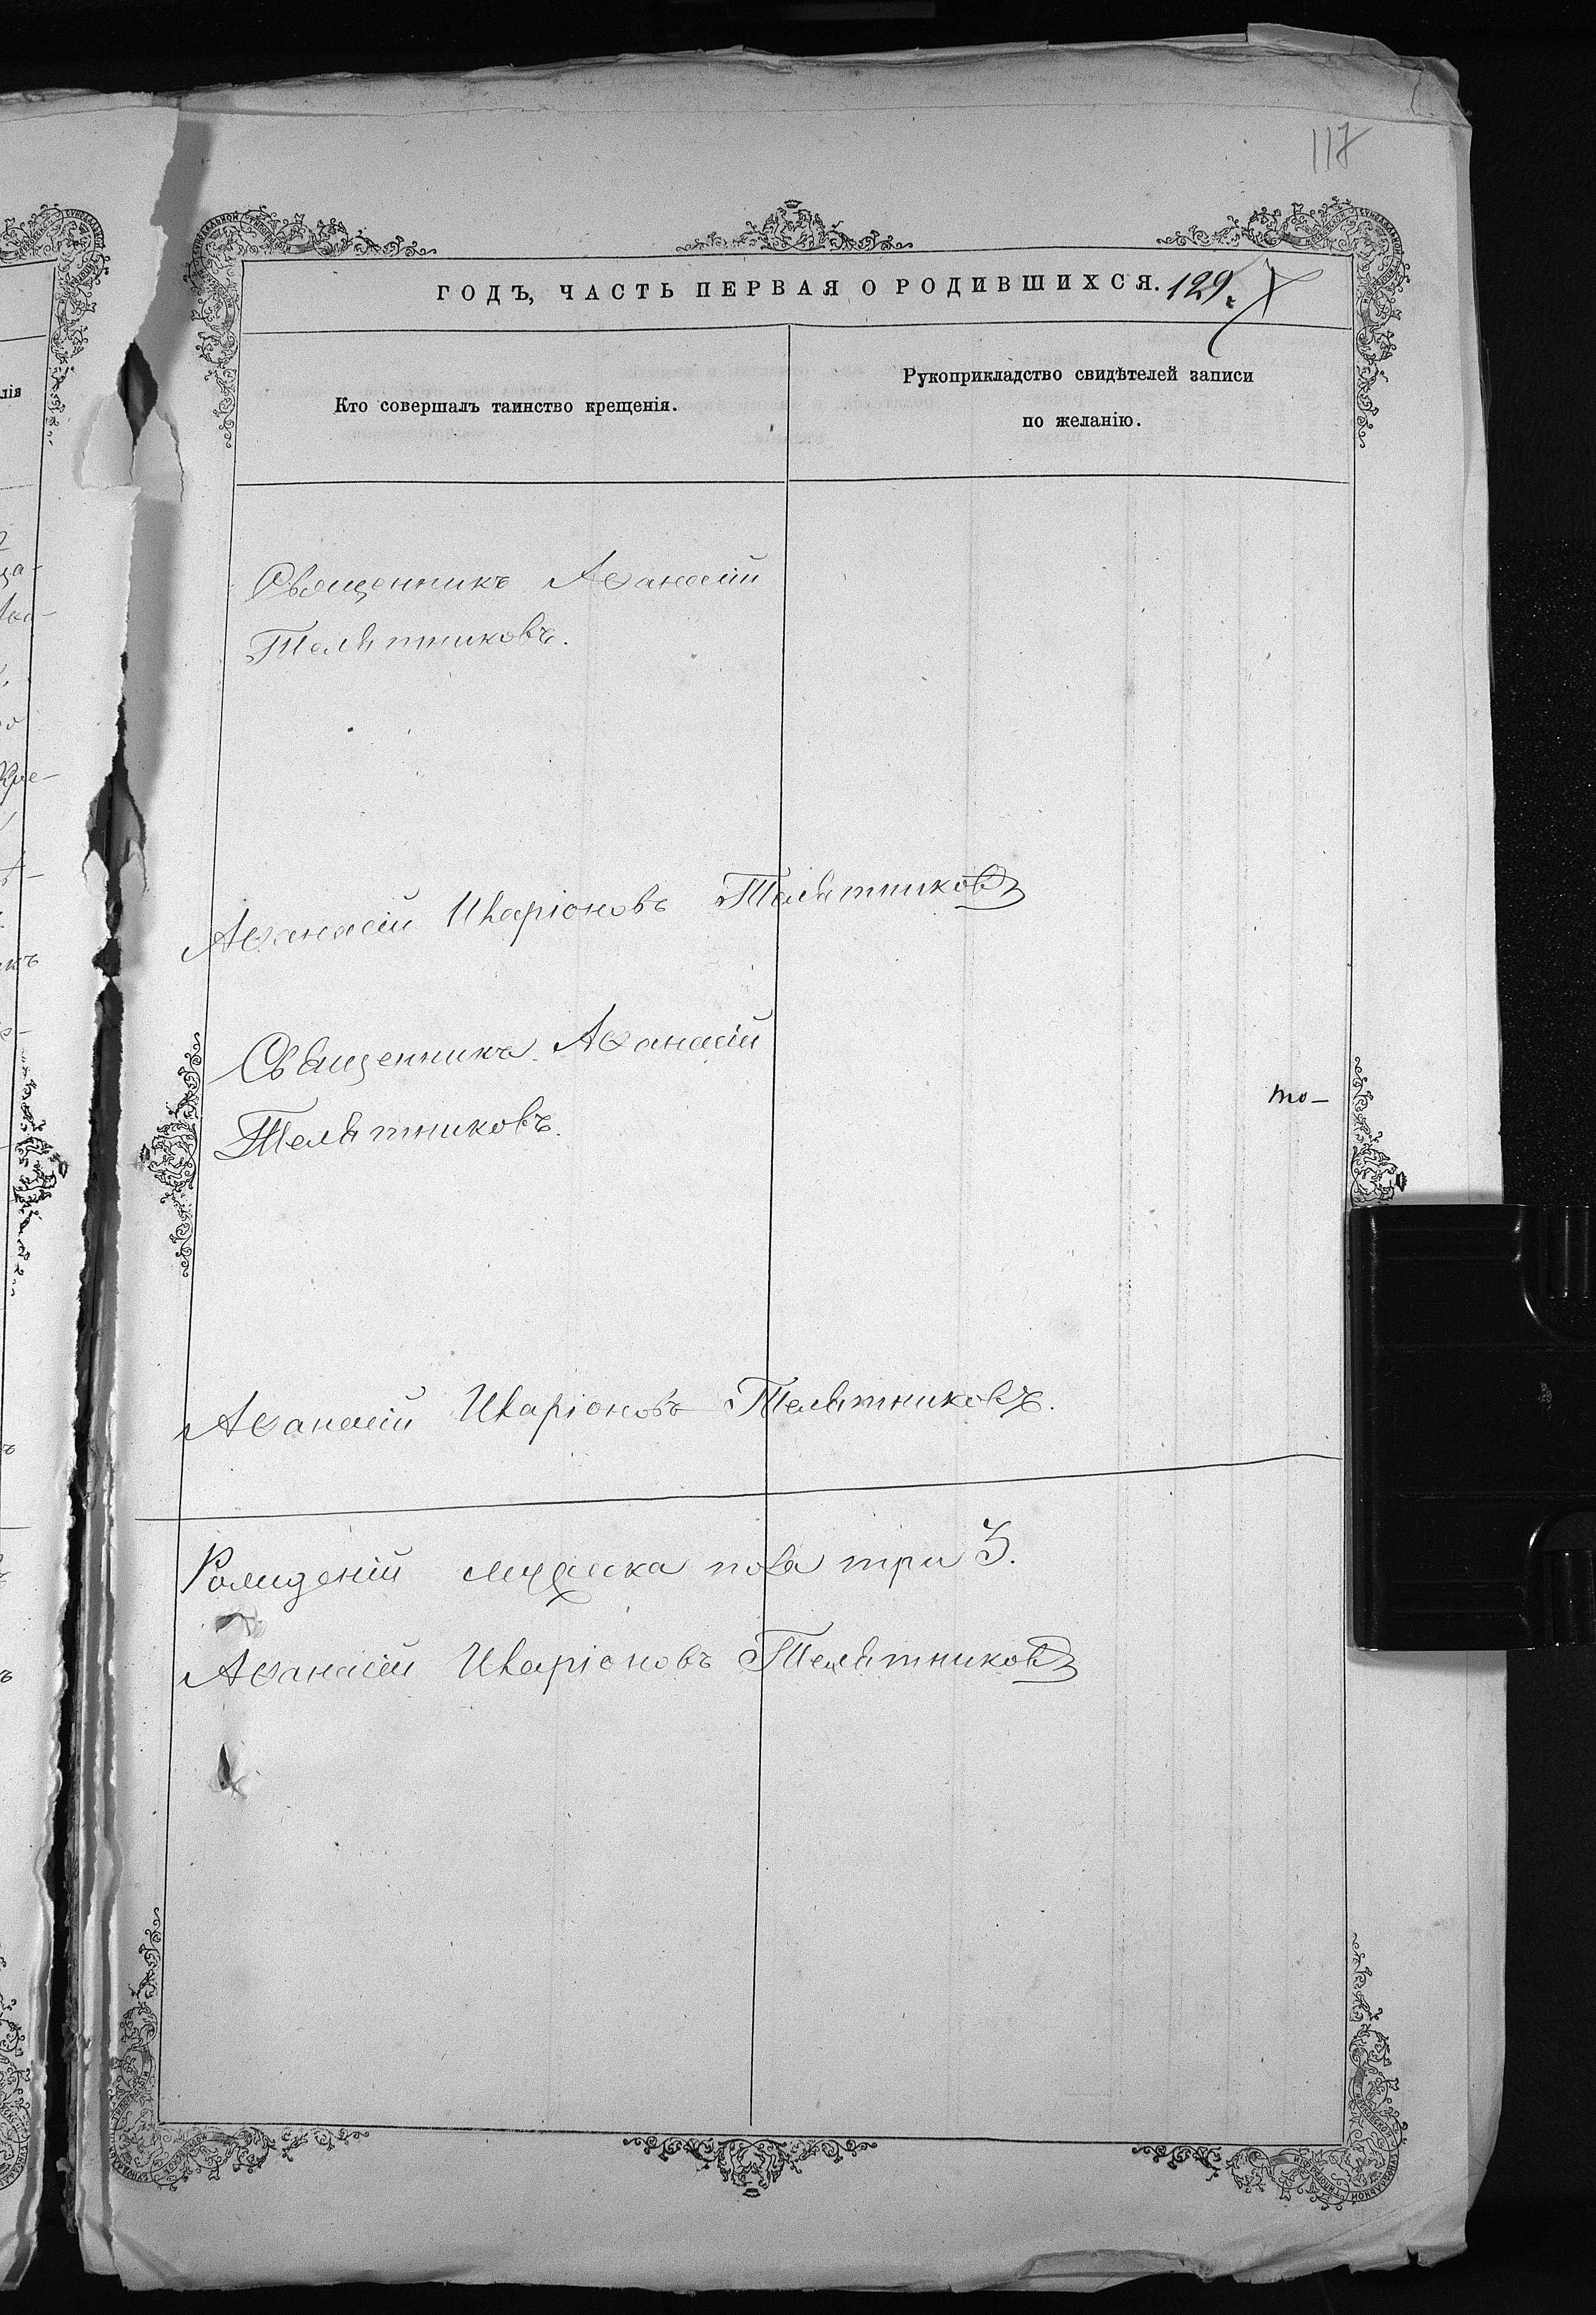 117
ГОДЪ, ЧАСТЬ ПЕРВАЯ О РОДИВШИХСЯ. 129.
Кто совершалъ таинство крещенія.
Рукоприкладство свидѣтелей записи
по желанію.
Священникъ Аѳанасій
Телятниковъ.
Аѳанасій Иларіоновъ Телятниковъ
Священникъ Аѳанасій
то-
Телятниковъ.
Аѳанасій Иларіоновъ Телятниковъ.
мужска пола три 3.
Аѳанасій Иларіоновъ Телятниковъ